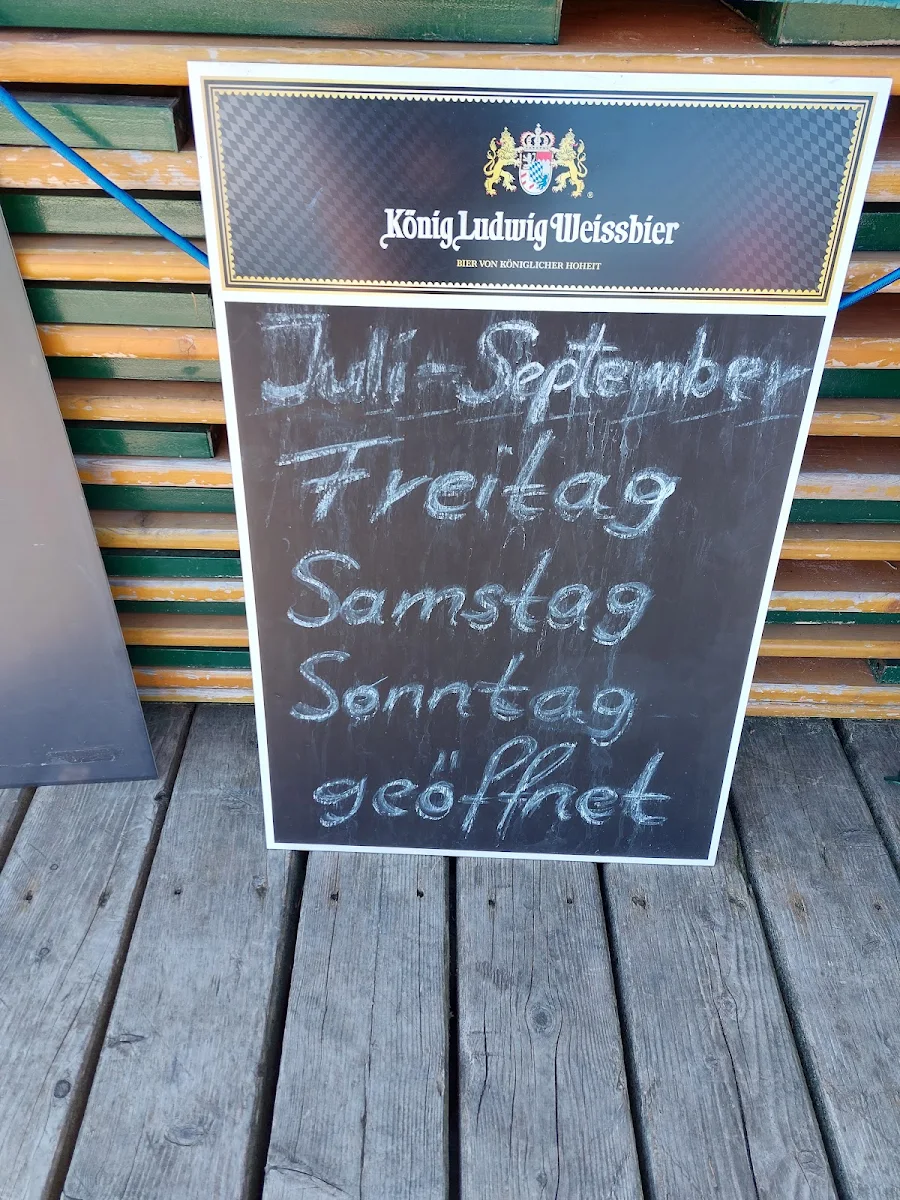 König Ludwig Weissbier
BIER VON KÖNIGLICHER HOHEIT
Juli - September
Freitag
Samstag
Sonntag
geöffnet